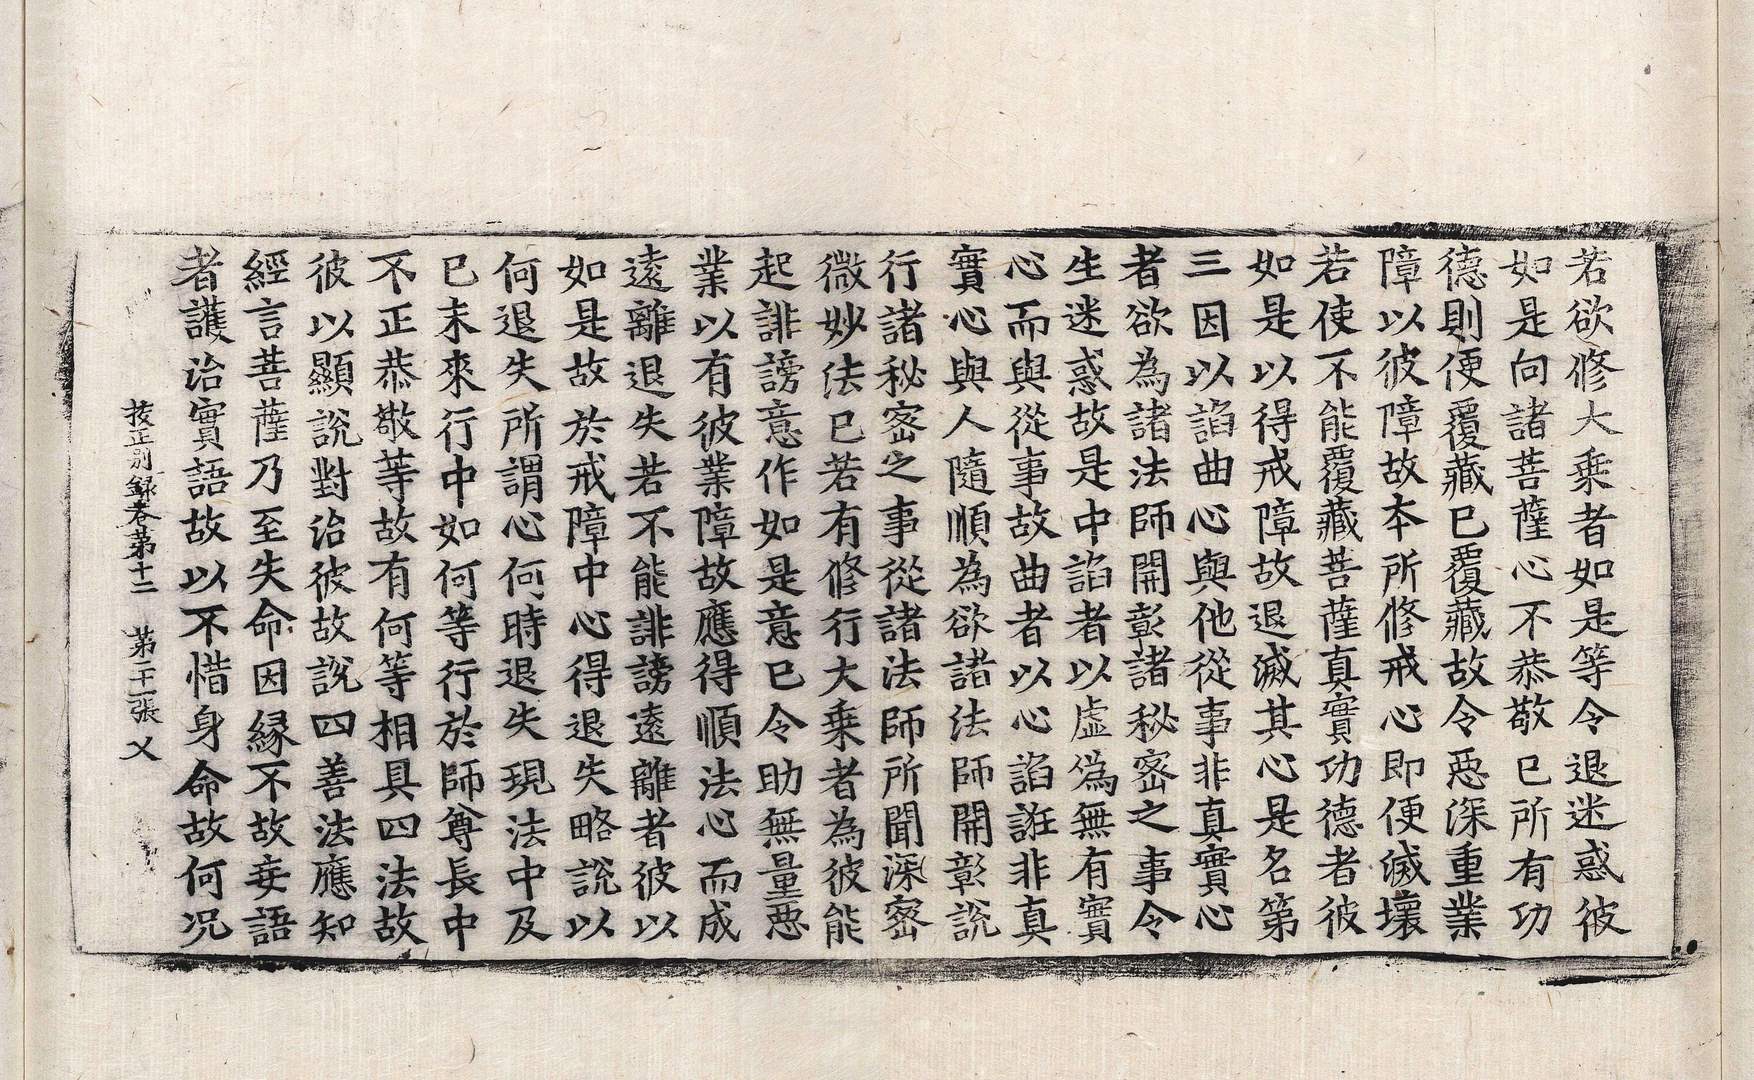 若欲修大乗者如是等令退迷惑彼
如是向諸菩薩心不恭敬已所有功
德則便覆藏已覆藏故令惡深重業
障以彼障故本所修戒心即便滅壞
若使不能覆藏菩薩真實功德者彼
如是以得戒障故退滅其心是名第
三因以諂曲心與他從事非真實心
者欲為諸法師開彰諸秘密之事令
生迷惑故是中諂者以虛偽無有實
心而與從事故曲者以心諂誑非真
實心與人隨順為欲諸法師開彰說
行諸秘密之事從諸法師所聞深密
微妙法已若有修行大乗者為彼能
起誹謗意作如是意已令助無量惡
業以有彼業障故應得順法心而成
遠離退失若不能誹謗遠離者彼以
如是故於戒障中心得退失略說以
何退失所謂心何時退失現法中及
已未來行中如何等行於師尊長中
不正恭敬等故有何等相具四法故
彼以顯說對治彼故說四善法應知
經言菩薩乃至失命因縁不故妄語
者護治實語故以不惜身命故何况
挍正別録卷第十二　第二十一張　乂